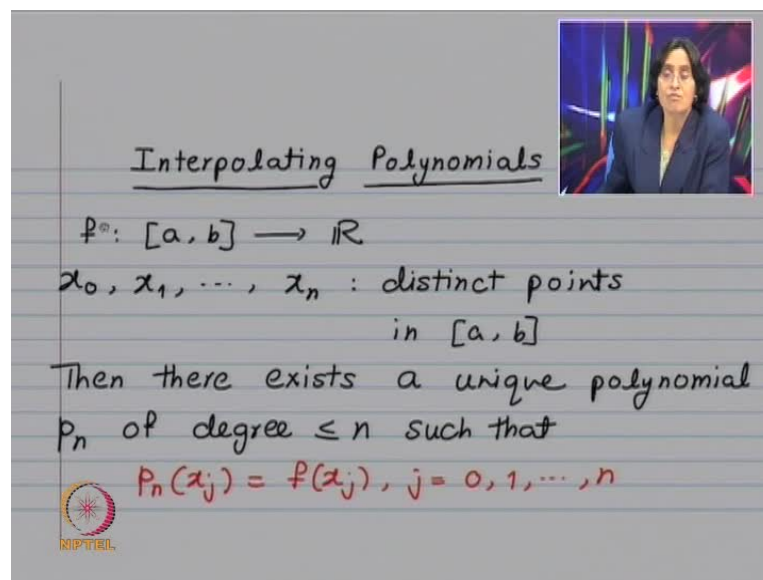 Interpolating Polynomials
f: [a, b] → ℝ
x₀, x₁, ⋯, xₙ : distinct points
in [a, b]
Then there exists a unique polynomial
pₙ of degree ≤ n such that
pₙ(xⱼ) = f(xⱼ), j = 0, 1, ⋯, n
NPTEL